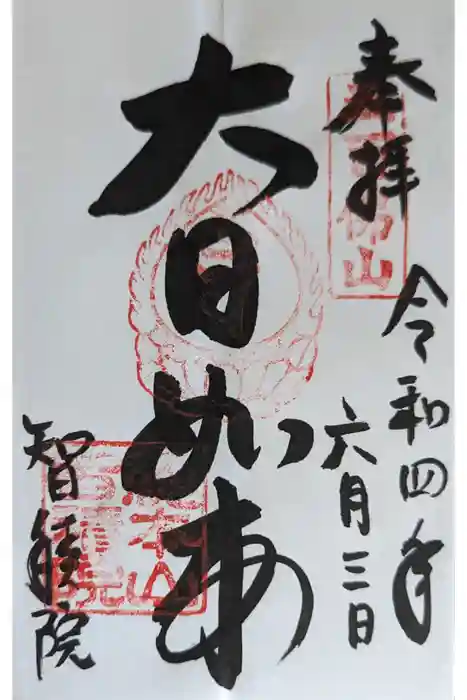 奉拝
令和四年
六月三日
大日如来
智積院